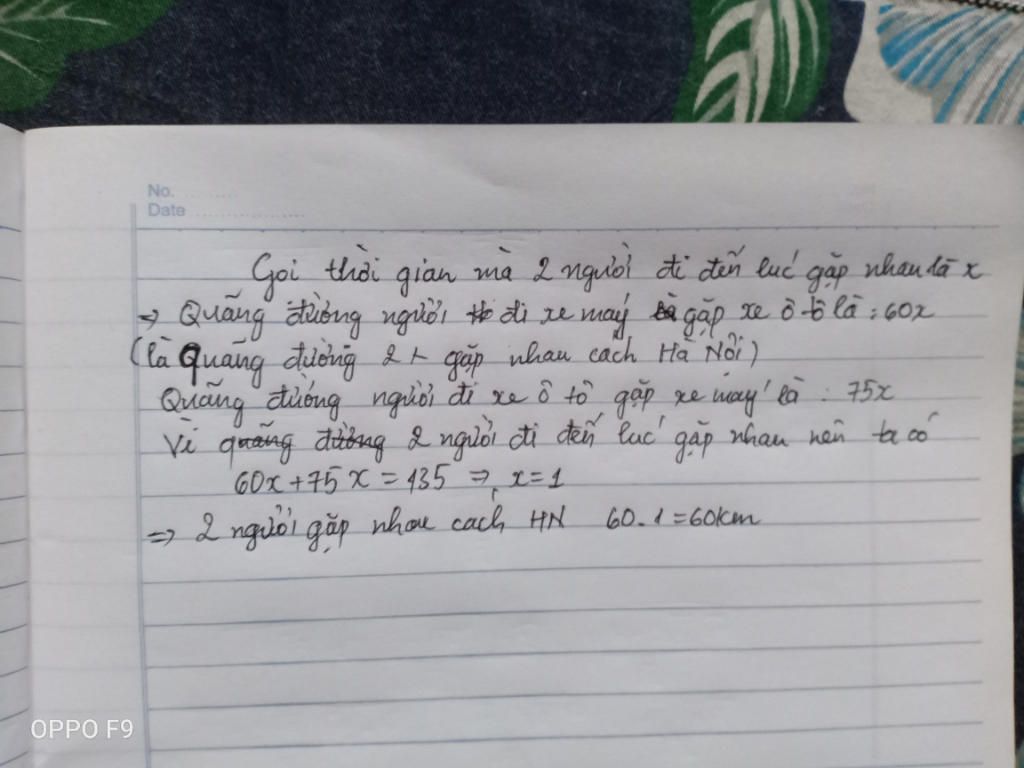 No. ..........
Date ......................
Gọi thời gian mà 2 người đi đến lúc gặp nhau là x
=> Quãng đường người đi xe máy gặp xe ô tô là : 60x
(là Quãng đường 2 gặp nhau cách Hà Nội)
Quãng đường người đi xe ô tô gặp xe máy là : 75x
Vì quãng đường 2 người đi đến lúc gặp nhau nên ta có
60x + 75x = 135 => x = 1
=> 2 người gặp nhau cách HN 60.1 = 60km
OPPO F9